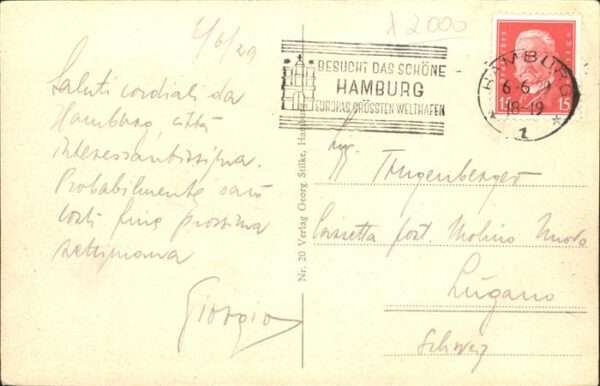 6/6/29
Saluti cordiali da
Hamburg, città
interessantissima.
Probabilmente sarò
costì fine prossima
settimana
Giorgio
Nr. 20 Verlag Georg Stilke, Hamburg
λ 2000
BESUCHT DAS SCHÖNE
HAMBURG
EUROPAS GRÖSSTEN WELTHAFEN
HAMBURG
6.6.
18-19
* 1 *
15 15
Sig. Trugenberger
Casetta post. Molino Nuovo
Lugano
Schweiz